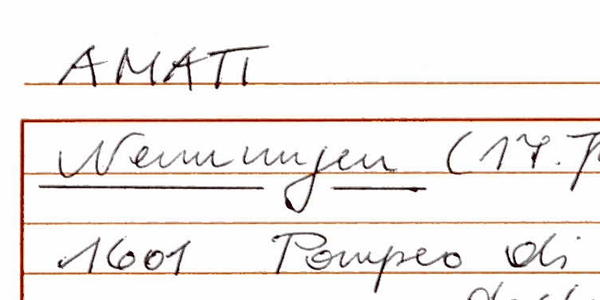 AMATI
Nennungen (17.
1601 Pompeo di